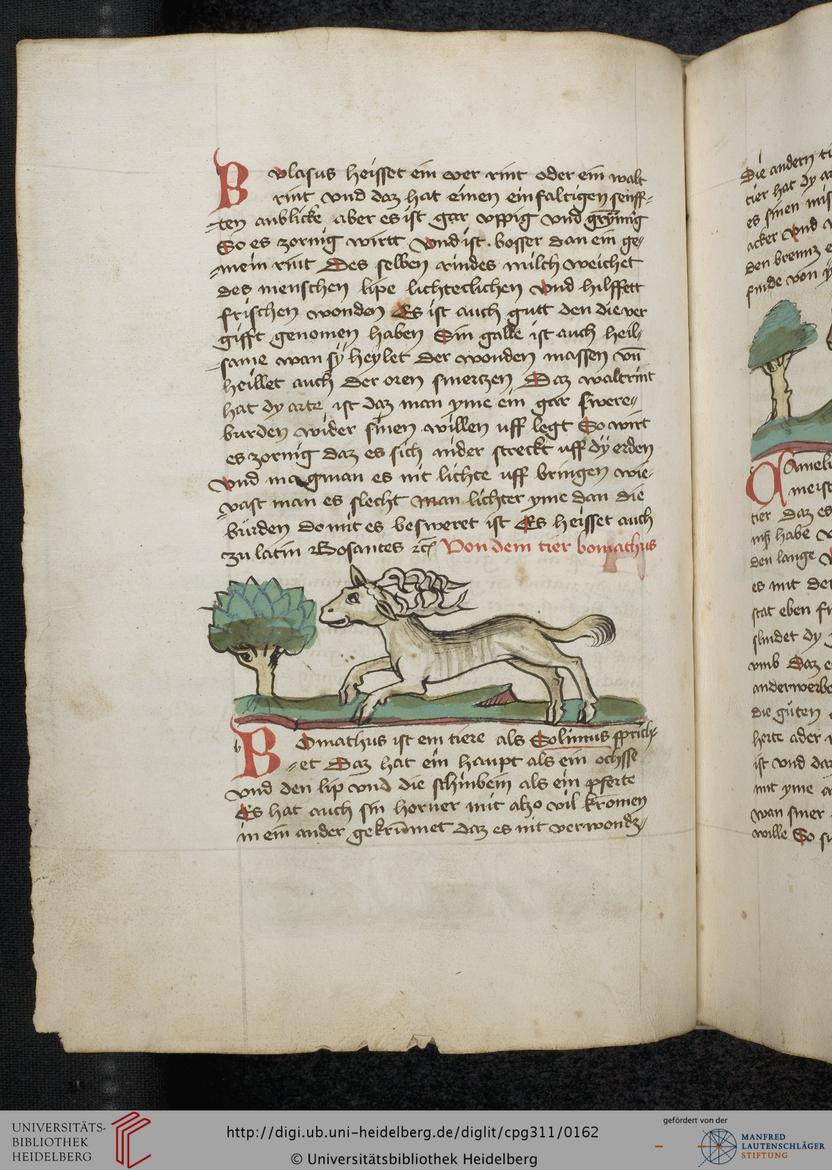 Bvlasus heisset ein ver rint oder ein walt
rint vnd daz hat einen einfaltigen senff-
-ten anblicke aber es ist gar vppig vnd grÿmig
So es zornig wirtt vnd ist bosser dan ein ge-
-mein rint Des selben rindes milch weichet
des menschen lipe lichteclichen vnd hilffett
frischen wonden Es ist auch gutt den die ver
gifft genomen haben Sin galle ist auch heil-
-same wan sÿ heylet der wonden massen vn̄
heillet auch der oren smertzen Daz waltrint
hat dy arte ist daz man yme ein gar swere-
burden wider sinen willen uff legt So wirt
es zornig daz es sich nider streckt uff dÿ erden
vnd mag man es nit lichte uff bringen wie-
vast man es slecht man lichter yme dan die
bürden do mit es besweret ist Es heisset auch
zu latin Bosantes Von dem tier bomathus
b
Bomathus ist ein tiere als Solinus sprich-
-et Daz hat ein haupt als ein ochsse
vnd den lip vnd die schinbein als ein pferte
Es hat auch sin horner mit alzo vil kromen
in ein ander gekrümet daz es nit verwond
Die andern
tier hat dy
es sinen
acker vnd
den brennz
finde von
meist
tier Daz es
habe
den lange
es mit der
stat eben
slindet dy
vmb Daz
anderwerbe
die güten
herte ader
ist vnd daz
mit yme
wan siner
wille So
UNIVERSITÄTS-
BIBLIOTHEK
HEIDELBERG
http://digi.ub.uni-heidelberg.de/diglit/cpg311/0162
© Universitätsbibliothek Heidelberg
gefördert von der
MANFRED
LAUTENSCHLÄGER
STIFTUNG